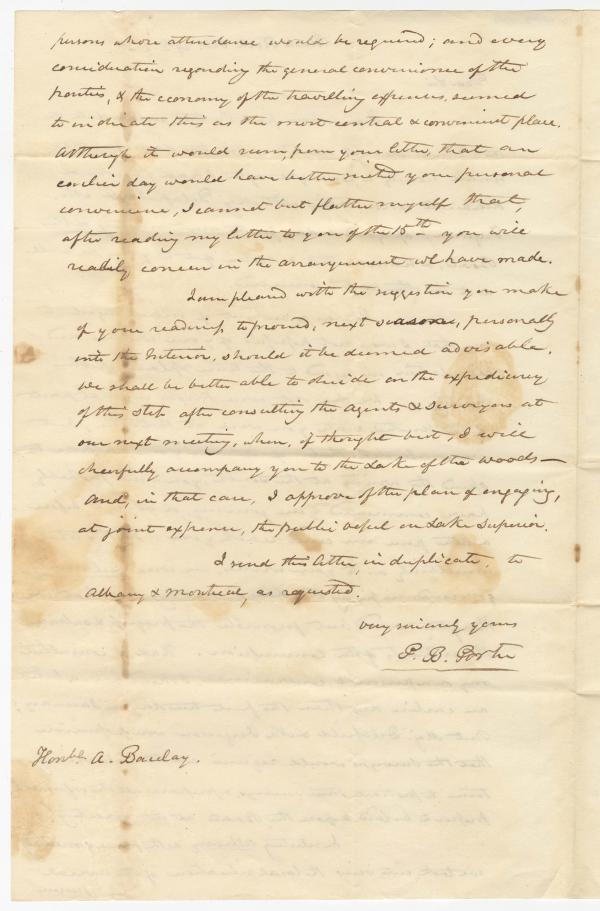 persons whose attendance would be required; and every
consideration regarding the general convenience of the
parties, & the economy of the travelling expenses, seemed
to indicate this as the most central & convenient place.
Although it would seem, from your letter, that an
earlier day would have better suited your personal
convenience, I cannot but flatter myself that,
after reading my letter to you of the 15th you will
readily concur in the arrangement we have made.
I am pleased with the suggestion you make
of your readiness to proceed, next season, personally
into the Interior, should it be deemed advisable.
We shall be better able to decide on the expediency
of this step after consulting the Agents & Surveyors at
our next meeting, when, if thought best, I will
cheerfully accompany you to the Lake of the Woods—
And, in that case, I approve of the plan of engaging,
at joint expense, the public vessel on Lake Superior.
I send this letter, in duplicate, to
Albany & Montreal, as requested.
very sincerely yours
P. B. Porter
Honble. A. Barclay.